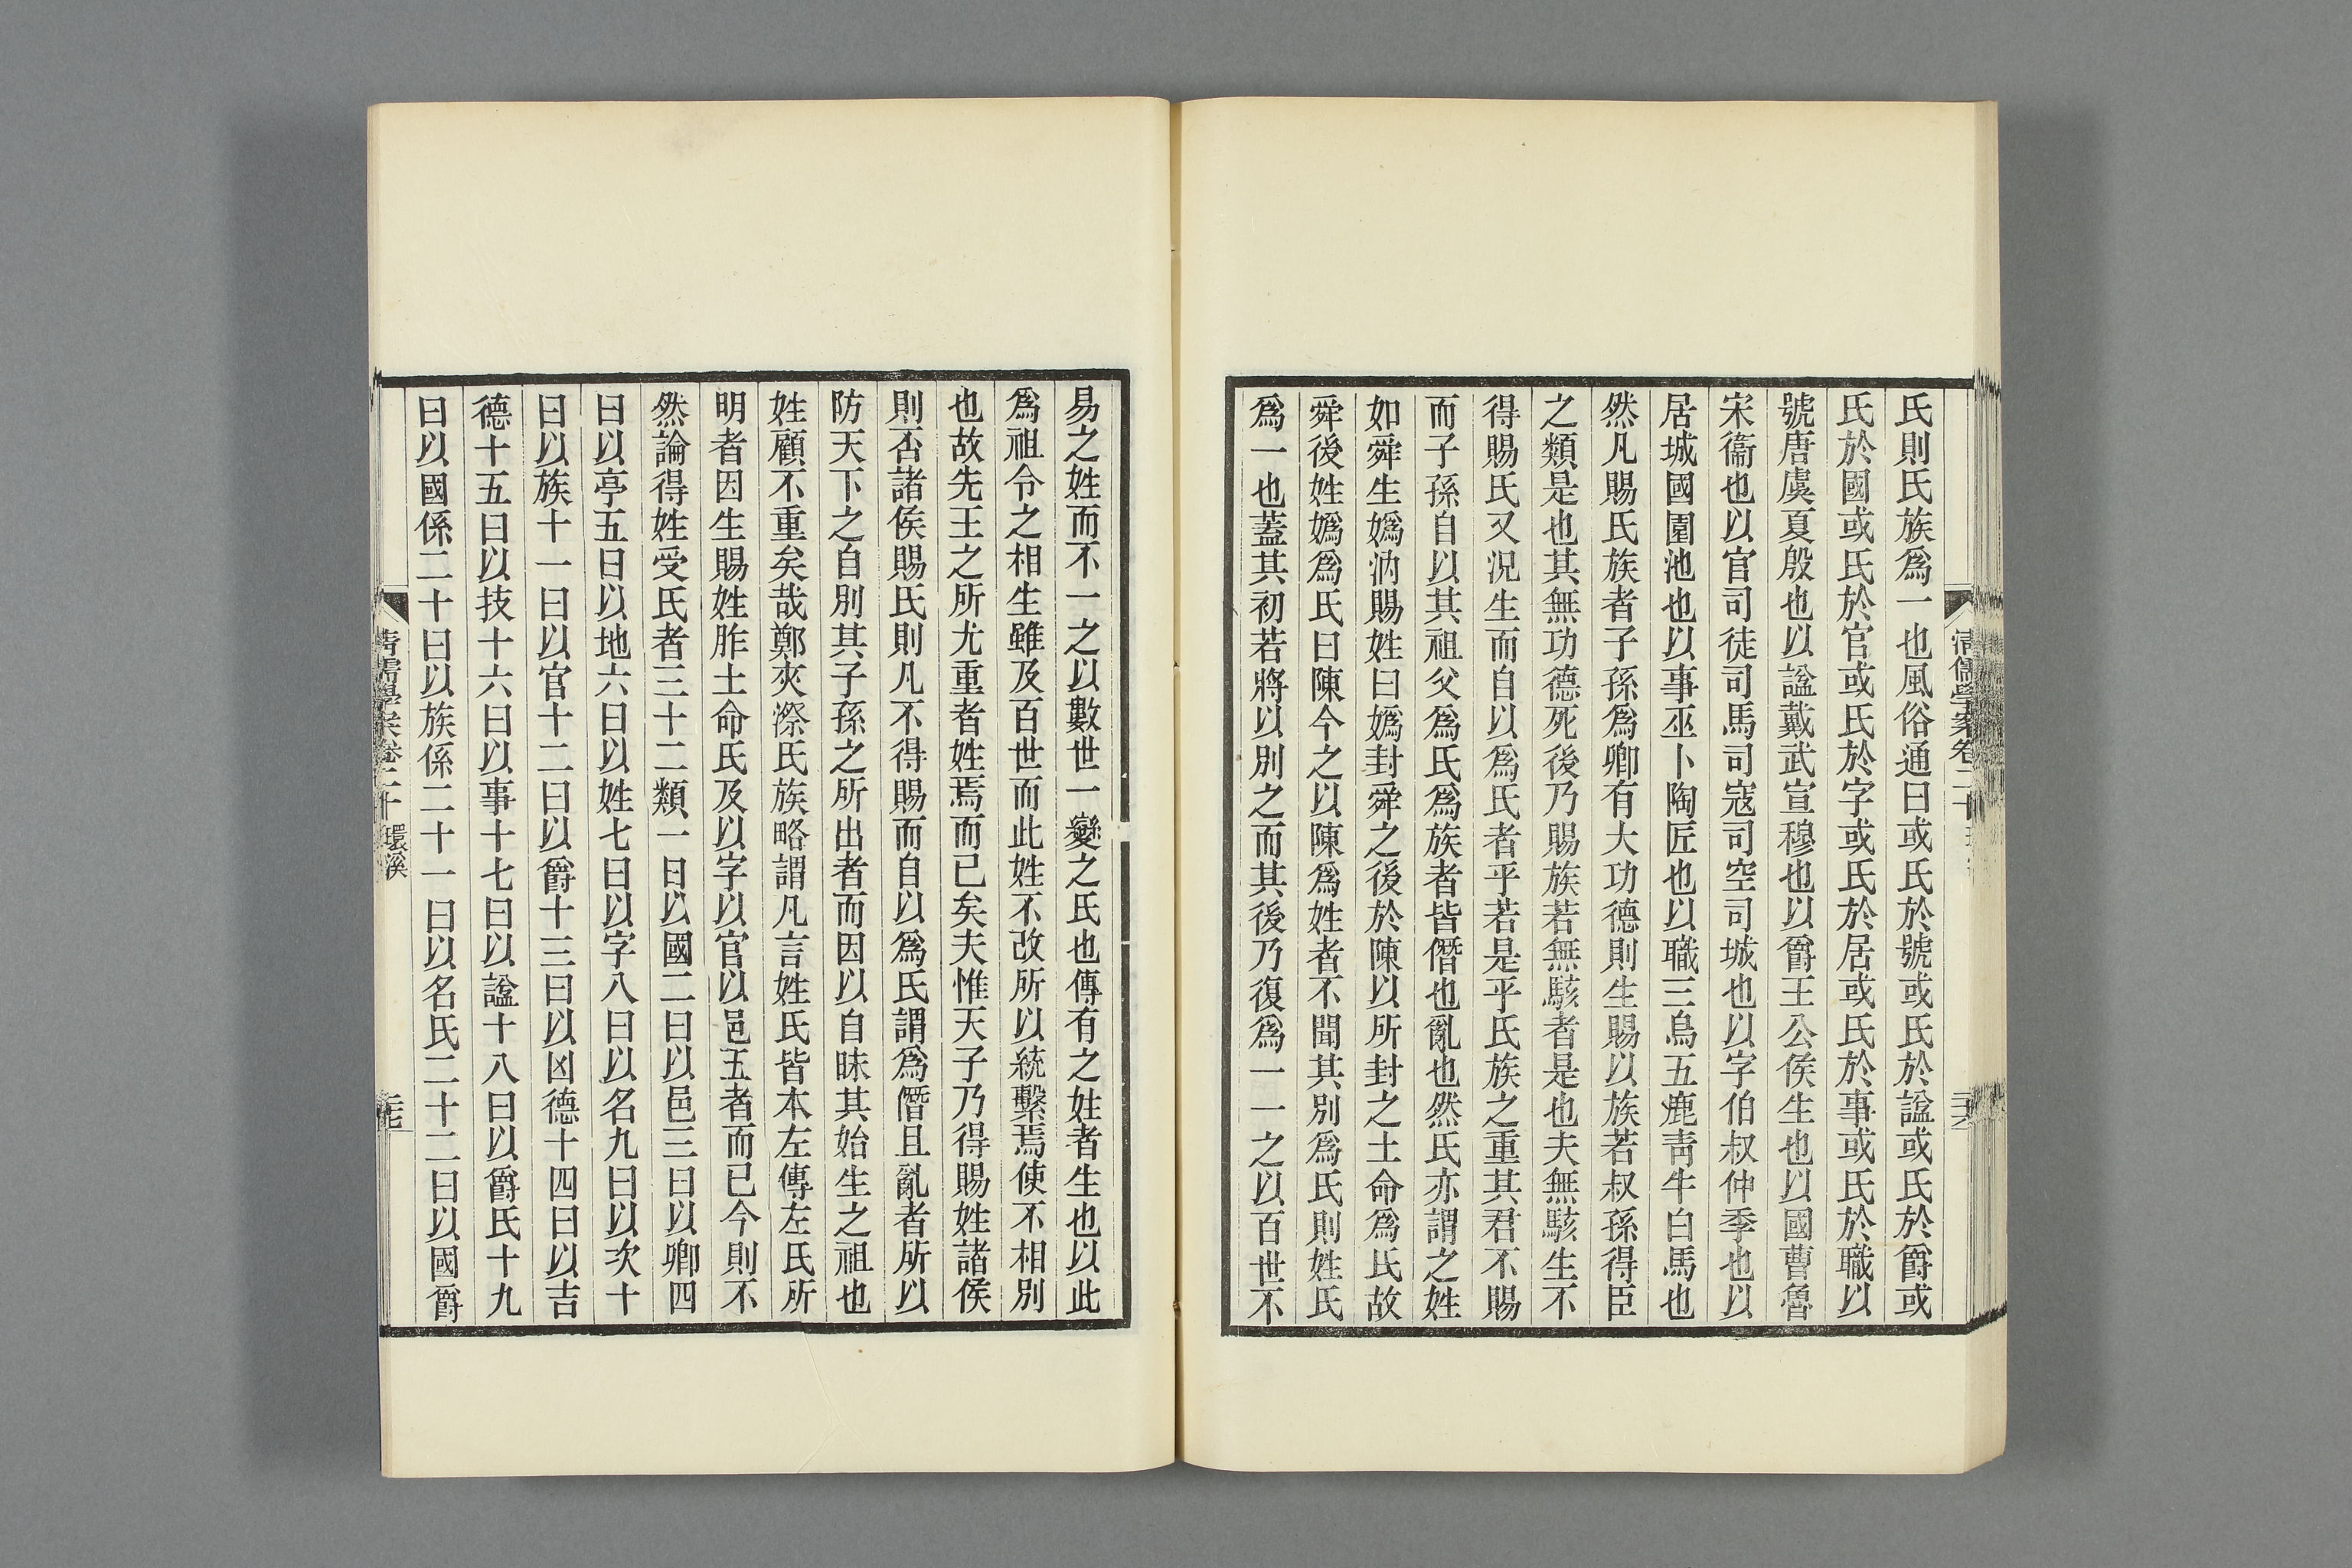 氏則氏族爲一也風俗通曰或氏於號或氏於諡或氏於爵或
氏於國或氏於官或氏於字或氏於居或氏於事或氏於職以
號唐虞夏殷也以諡戴武宣穆也以爵王公侯生也以國曹魯
宋衞也以官司徒司馬司寇司空司城也以字伯叔仲季也以
居城國圍池也以事巫卜陶匠也以職三烏五鹿靑牛白馬也
然凡賜氏族者子孫爲卿有大功德則生賜以族若叔孫得臣
之類是也其無功德死後乃賜族若無駭者是也夫無駭生不
得賜氏又況生而自以爲氏者乎若是乎氏族之重其君不賜
而子孫自以其祖父爲氏爲族者皆僭也亂也然氏亦謂之姓
如舜生嬀汭賜姓曰嬀封舜之後於陳以所封之土命爲氏故
舜後姓嬀爲氏曰陳今之以陳爲姓者不聞其別爲氏則姓氏
爲一也蓋其初若將以別之而其後乃復爲一一之以百世不
清儒學案卷二十
二六
易之姓而不一之以數世一變之氏也傳有之姓者生也以此
爲祖令之相生雖及百世而此姓不改所以統繫焉使不相別
也故先王之所尤重者姓焉而已矣夫惟天子乃得賜姓諸侯
則否諸侯賜氏則凡不得賜而自以爲氏謂爲僭且亂者所以
防天下之自別其子孫之所出者而因以自昧其始生之祖也
姓顧不重矣哉鄭夾漈氏族略謂凡言姓氏皆本左傳左氏所
明者因生賜姓胙土命氏及以字以官以邑五者而已今則不
然論得姓受氏者三十二類一曰以國二曰以邑三曰以鄉四
曰以亭五曰以地六曰以姓七曰以字八曰以名九曰以次十
曰以族十一曰以官十二曰以爵十三曰以凶德十四曰以吉
德十五曰以技十六曰以事十七曰以諡十八曰以爵氏十九
曰以國係二十曰以族係二十一曰以名氏二十二曰以國爵
清儒學案卷二十 環溪
二七